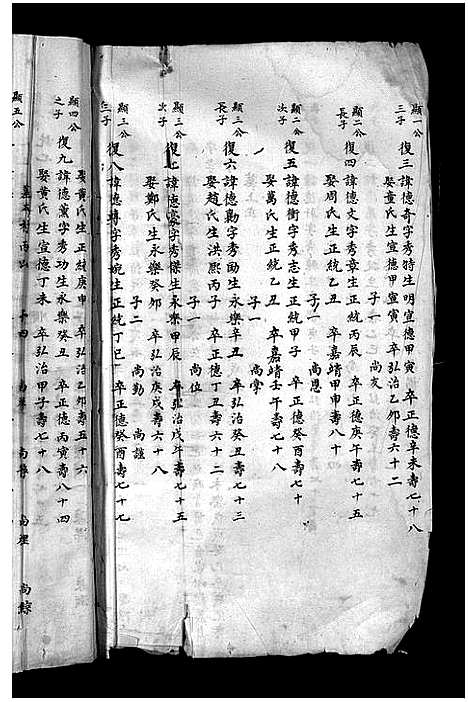 顯一公三子
復三諱德奇字秀特生明宣德甲寅 卒正德辛未壽七十八
娶童氏生宣德甲寅 卒弘治乙卯壽六十二
子一 尚友
顯二公長子
復四諱德文字秀章生正統丙辰 卒正德庚午壽七十五
娶周氏生正統乙丑 卒嘉靖甲申壽八十
子一 尚恩
顯二公次子
復五諱德衡字秀志生正統甲子 卒正德癸酉壽七十
娶萬氏生正統乙丑 卒嘉靖壬午壽七十八
子一 尚学
顯三公長子
復六諱德勛字秀勵生永樂辛丑 卒弘治癸丑壽七十三
娶趙氏生洪熙丙子 卒正德丁丑壽六十二
子一 尚位
顯三公次子
復七諱德豪字秀傑生永樂甲辰 卒弘治戊午壽七十五
娶鄭氏生永樂癸卯 卒弘治庚戌壽六十八
子二 尚勤 尚謹
顯三公三子
復八諱德轉字秀婉生正統丁巳 卒正德癸酉壽七十七
娶黃氏生正統庚申 卒弘治乙卯壽五十六
顯四公之子
復九諱德薰字秀功生永樂癸丑 卒正德丙寅壽八十四
娶黃氏生宣德丁未 卒弘治甲子壽七十八
子四 尚 尚 尚 尚錦
顯五公